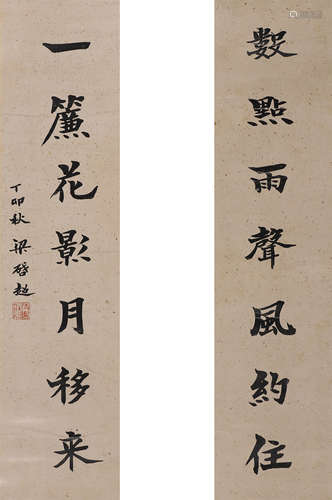 數點雨聲風約住
一簾花影月移来
丁卯秋
梁啓超